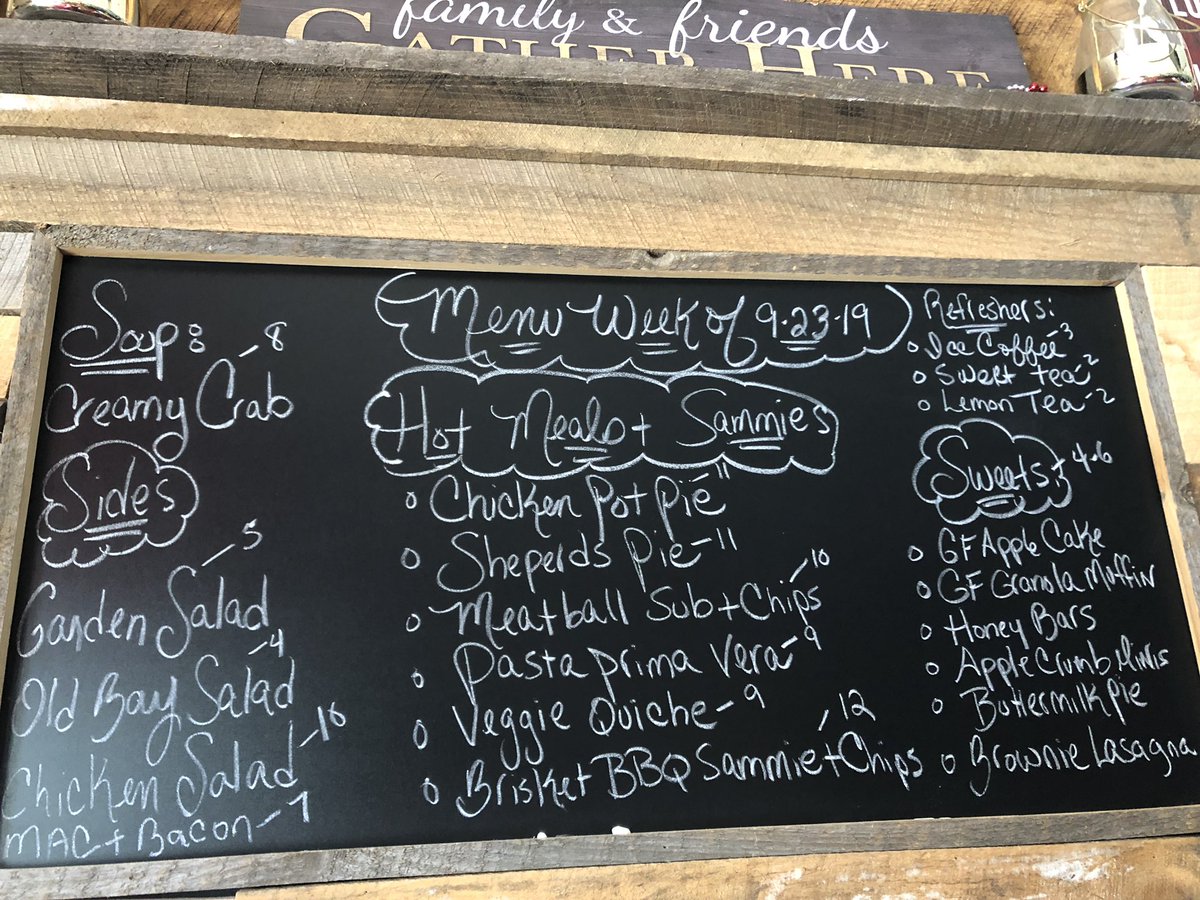 family & friends
GATHER HERE
Soup:
8
Creamy Crab
Sides
5
Garden Salad
4
Old Bay Salad
Chicken Salad
MAC + Bacon - 7
Menu Week of 9.23.19
Hot Meals + Sammies
Chicken Pot Pie - 11
Sheperds Pie - 11
10
Meatball Sub + Chips
Pasta prima Vera - 9
Veggie Quiche - 9
12
Brisket BBQ Sammie + Chips
Refreshers:
Ice Coffee - 3
Sweet Tea - 2
Lemon Tea - 2
Sweets: 4-6
GF Apple Cake
GF Granola Muffin
Honey Bars
Apple Crumb Minis
Buttermilk Pie
Brownie Lasagna